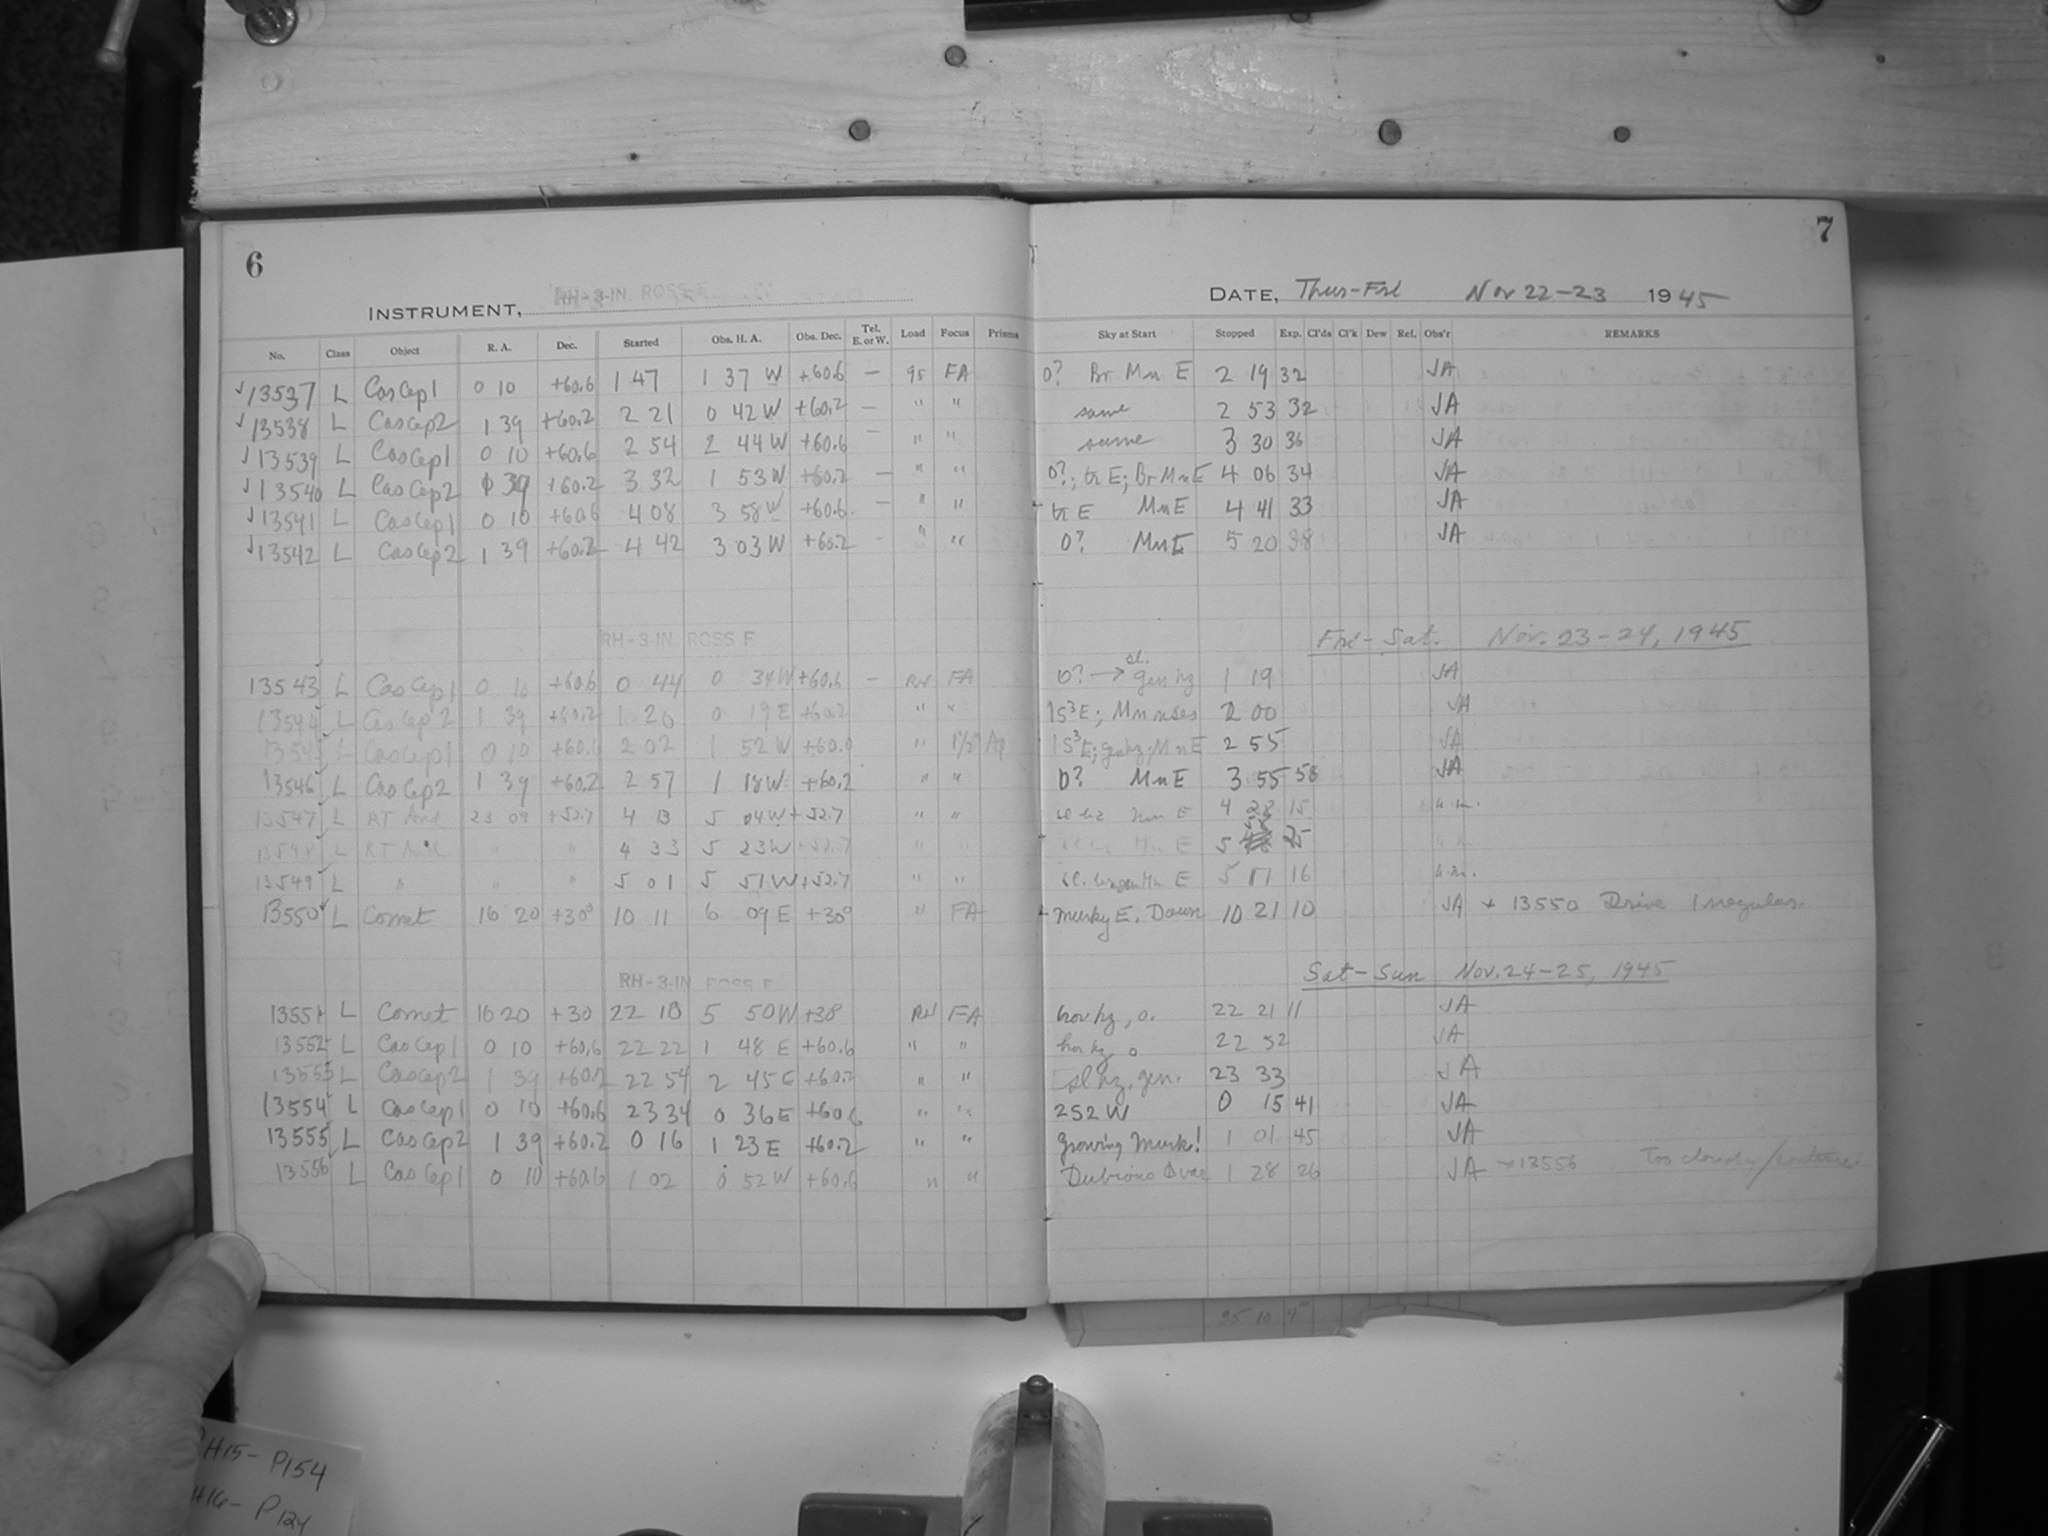 6
7
INSTRUMENT, RH-3-IN. ROSS F
DATE, Thurs-Fri Nov 22-23 1945
No. Class Object R. A. Dec. Started Obs. H. A. Obs. Dec. Tel. E. or W. Load Focus Prisms Sky at Start Stopped Exp. Cl'ds Cl'k Dew Ref. Obs'r REMARKS
13537 L CasCep1 0 10 +60.6 1 47 1 37 W +60.6 — 95 FA 0? Br Mn E 2 19 32 JA
13538 L CasCep2 1 39 +60.2 2 21 0 42 W +60.2 — " " same 2 53 32 JA
13539 L CasCep1 0 10 +60.6 2 54 2 44 W +60.6 — " " same 3 30 36 JA
13540 L CasCep2 39 +60.2 3 32 1 53 W +60.2 — " " 0?; tr E; Br Mn E 4 06 34 JA
13541 L CasCep1 0 10 +60.6 4 08 3 58 W +60.6 — " " tr E Mn E 4 41 33 JA
13542 L CasCep2 1 39 +60.2 4 42 3 03 W +60.2 - " " 0? Mn E 5 20 38 JA
RH-3-IN ROSS F
Fri-Sat. Nov. 23-24, 1945
13543 L CasCep1 0 10 +60.6 0 44 0 34 W +60.6 - RH FA 0? → sl. gen hz 1 19 JA
13544 L CasCep2 1 39 +60.2 1 20 0 19 E +60.2 " " 1S³E; Mn rises 2 00 JA
1354 L CasCep1 0 10 +60.6 2 02 1 52 W +60.6 " 1½" Ap 1S³E; gen hz; Mn E 2 55 JA
13546 L CasCep2 1 39 +60.2 2 57 1 18 W +60.2 " " 0? Mn E 3 55 58 JA
13547 L RT And 23 09 +52.7 4 13 5 04 W +52.7 " " sl hz Mn E 4 28 15
13548 L RT And " " 4 33 5 23 W +52.7 " " Mn E 5 25
13549 L " " " 5 01 5 51 W +52.7 " " sl. Mn E 5 17 16
13550 L Comet 16 20 +30° 10 11 6 09 E +30° " FA murky E. Dawn 10 21 10 JA + 13550 Drive Irregular.
RH-3-IN ROSS F
Sat-Sun Nov. 24-25, 1945
13551 L Comet 16 20 +30 22 10 5 50 W +30 RH FA hor hz, 0. 22 21 11 JA
13552 L CasCep1 0 10 +60.6 22 22 1 48 E +60.6 " " hor hz, 0 22 52 JA
13553 L CasCep2 1 39 +60.2 22 54 2 45 E +60.2 " " sl hz, gen. 23 33 JA
13554 L CasCep1 0 10 +60.6 23 34 0 36 E +60.6 " " 2S2W 0 15 41 JA
13555 L CasCep2 1 39 +60.2 0 16 1 23 E +60.2 " " Growing Murk! 1 01 45 JA
13556 L CasCep1 0 10 +60.6 1 02 0 52 W +60.6 " " Dubious 1 28 26 JA + 13556 Too cloudy
35 10
H15- P154
H16- P124